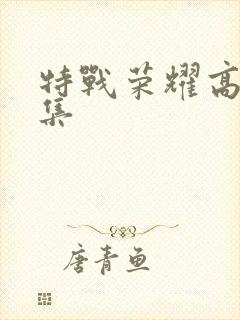 特戰荣耀高
集
唐青鱼